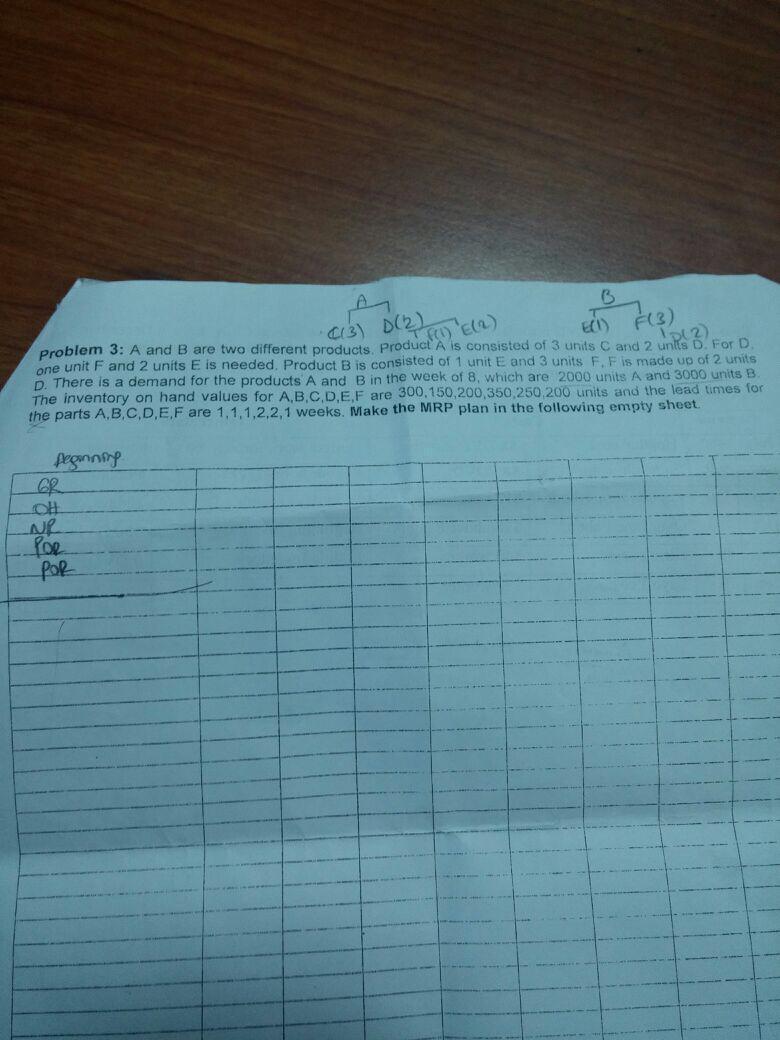 A
B
C(3) D(2) F(1) E(2)
E(1) F(3)
D(2)
Problem 3: A and B are two different products. Product A is consisted of 3 units C and 2 units D. For D,
one unit F and 2 units E is needed. Product B is consisted of 1 unit E and 3 units F, F is made up of 2 units
D. There is a demand for the products A and B in the week of 8, which are 2000 units A and 3000 units B.
The inventory on hand values for A,B,C,D,E,F are 300,150,200,350,250,200 units and the lead times for
the parts A,B,C,D,E,F are 1,1,1,2,2,1 weeks. Make the MRP plan in the following empty sheet.
Beginning
GR
OH
NR
POR
POR